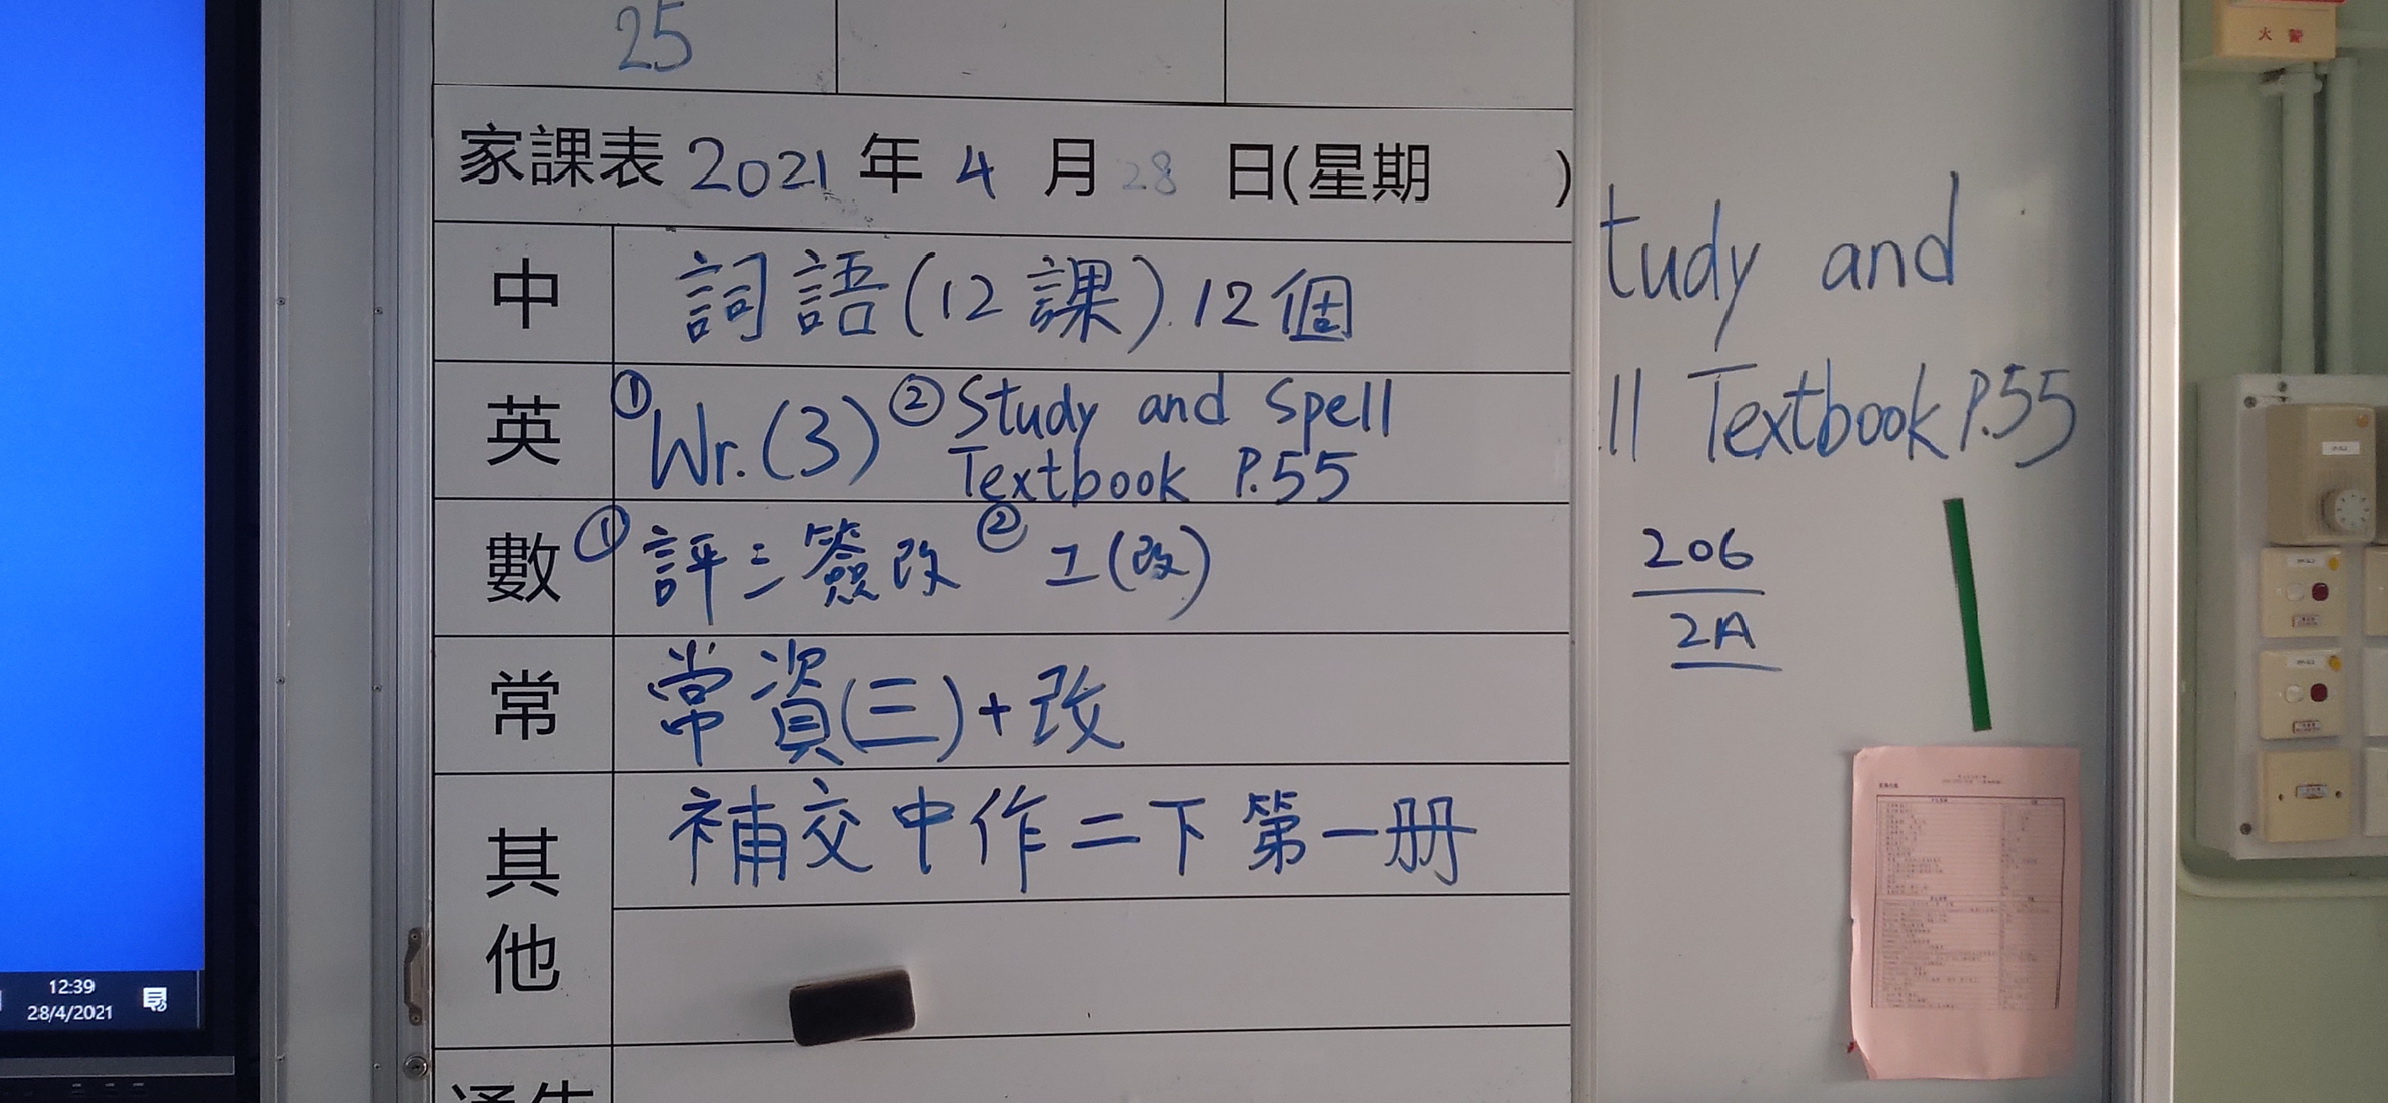 25
家課表 2021 年 4 月 28 日(星期 )
中 詞語(12課).12個
英 ①Wr.(3) ②Study and Spell
Textbook P.55
數 ①評三簽改 ②工(改)
常 常資(三)+改
其他 補交中作二下第一册
tudy and
ll Textbook P.55
206
2A
火警
12:39
28/4/2021